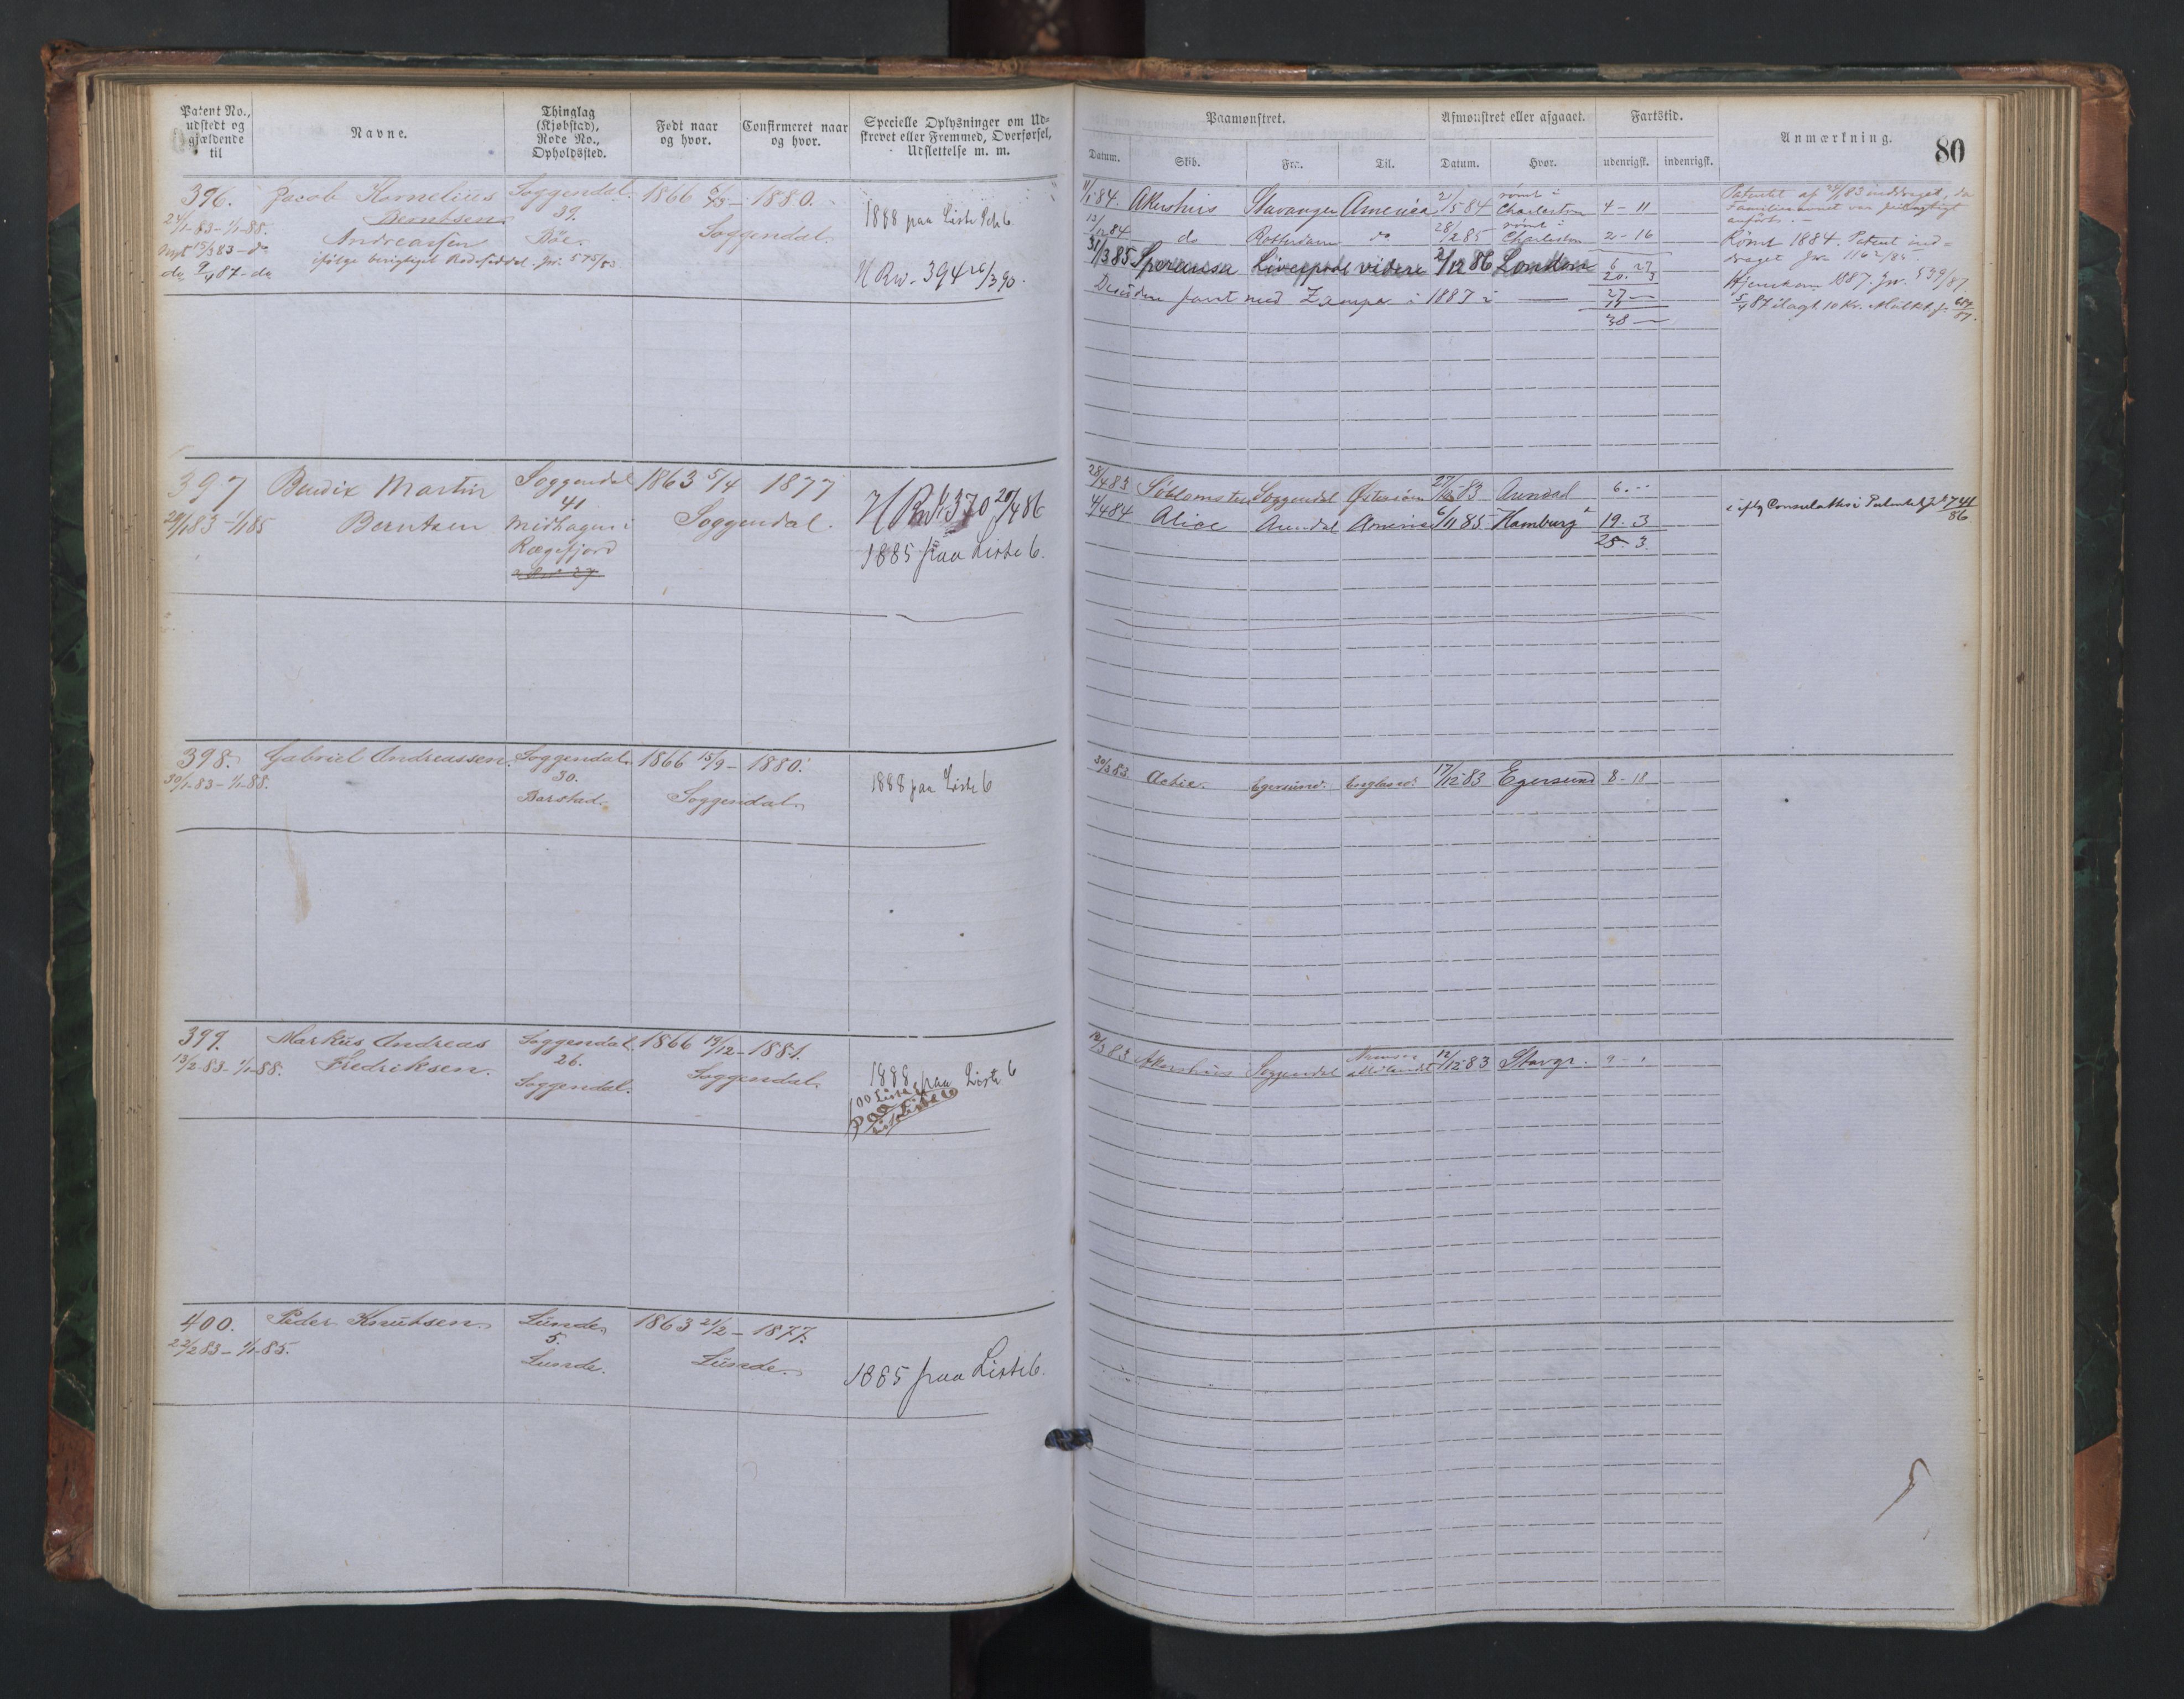 Patent No., udstedt og gjældende til
Navne.
Thinglag (Kjøbstad), Rode No., Opholdssted.
Født naar og hvor.
Confirmeret naar og hvor.
Specielle Oplysninger om Udskrevet eller Fremmed, Overførsel, Udslettelse m. m.
Paamønstret.
Afmønstret eller afgaaet.
Fartstid.
Anmærkning.
80
Datum.
Skib.
Fra.
Til.
Datum.
Hvor.
udenrigsk.
indenrigsk.
396. Jacob Kornelius Soggendal. 1866 1880.
24/1-83-1/1-88. Berntsen 39. Soggendal.
Nyt 15/3 83 - do Andreassen Bøe.
do 9/4 87 - do ifølge berigtiget Rodeseddel. Jr. 575/83
1888 paa Liste 6
H Rw. 394 26/3 90.
11/1 84. Akershus Stavanger America 21/5 84 rømt i Charleston 4 - 11
13/12 84 do Rotterdam do 28/12 85 rømt i Charleston 2 - 16
31/3 85 Speranza Liverpool videre 2/12 86 London 6 27
20. 3
Desuden faret med Zampa i 1887 i
27 -
38 -
Patentet af 24/1 83 inddraget, da
Familienavnet var feilagtigt
anført. -
Rømt 1884. Patent ind=
draget Jr. 1162/85.
Hjemkom 1887. Jr. 539/87.
5/4 87 ilagt 10 Kr. Mulkt. J.
397 Bendix Martin Soggendal 1863 5/4 1877
29/1 83 - 1/1 85 Berntsen 41 Soggendal.
Midhagen i
Rægefjord
H Rw. 370 20/4 86
1885 paa Liste 6.
28/4 83 Søblomsten Soggendal Østersøen 27/12 83 Arendal 6 . "
4/4 84 Alice Arendal America 6/11 85 Hamburg 19. 3
25. 3.
398. Gabriel Andreassen. Soggendal. 1866 15/9 - 1880.
30/1-83-1/1-88. 30. Soggendal.
Barstad.
1888 paa Liste 6
30/3 83. Activ. Egersund. England. 17/12 83 Egersund 8 - 18
399. Markus Andreas Soggendal. 1866 19/12 - 1881.
13/2 83. 1/1-88. Fredriksen. 26. Soggendal.
Soggendal.
1888 paa Liste 6
12/3 83 Akershus Soggendal 12/12 83 Stavgr.
400. Peder Knutsen. Lunde. 1863 21/2 - 1877.
22/2 83 - 1/1-85. 5. Lunde.
Lunde.
1885 paa Liste 6.